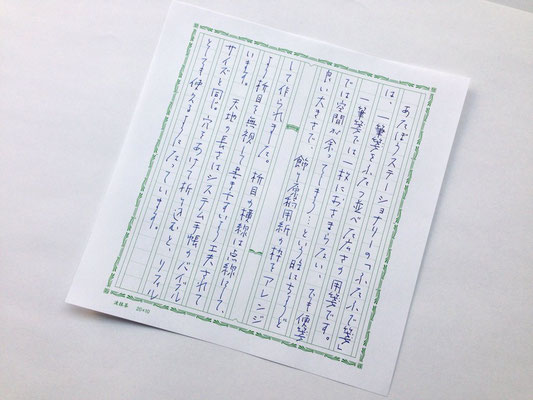 あたぼうステーショナリーの「ふたふで箋」
は、一筆箋をふたつ並べた大きさの用箋です。
一筆箋では一枚におさまらない、でも便箋
では空間が余ってしまう…という時にちょうど
良い大きさで、飾り原稿用紙の枠をアレンジ
して作られました。折目の横線は点線にして、
より折目を無視して書きやすいよう工夫されて
います。天地の長さはシステム手帳のバイブル
サイズと同じ。穴をあけて折り込むと、リフィル
としても使えるようになっています。
20×10